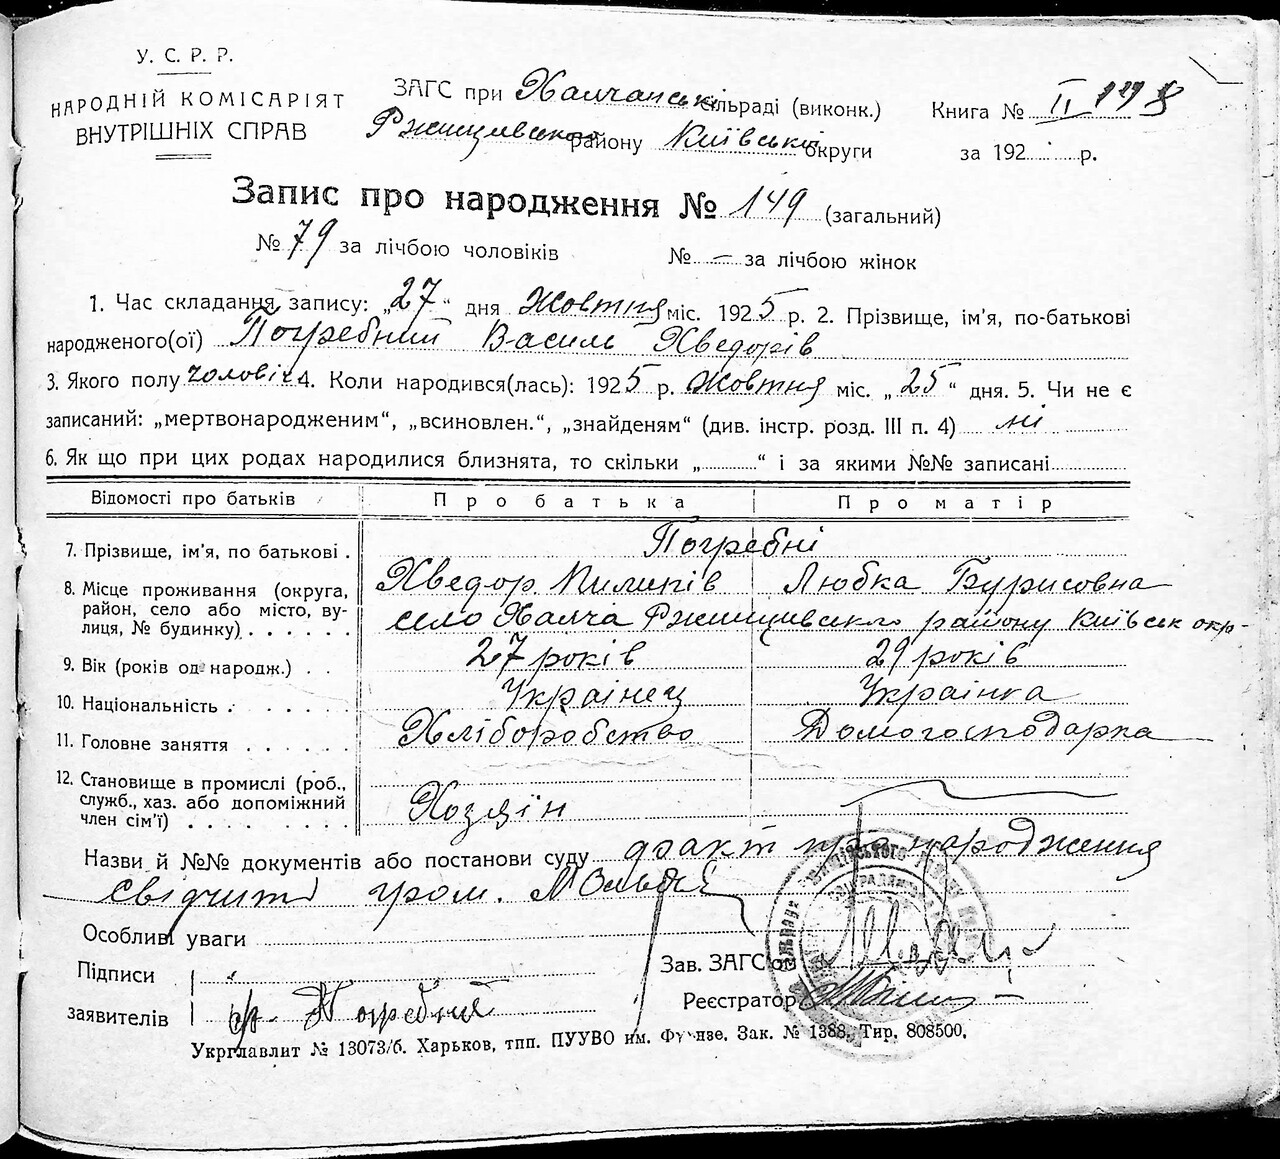 У. С. Р. Р.
НАРОДНІЙ КОМІСАРІЯТ
ВНУТРІШНІХ СПРАВ
ЗАГС при Халчанській сільраді (виконк.)
Ржищівського району Київської округи
Книга № II 198
за 192 р.
Запис про народження № 149 (загальний)
№ 79 за лічбою чоловіків № — за лічбою жінок
1. Час складання запису: „27“ дня Жовтня міс. 1925 р. 2. Прізвище, ім'я, по-батькові
народженого(ої) Погребний Василь Хведорів
3. Якого полу чоловіч 4. Коли народився(лась): 1925 р. Жовтня міс. „25“ дня. 5. Чи не є
записаний: „мертвонародженим“, „всиновлен.“, „знайденям“ (див. інстр. розд. III п. 4) ні
6. Як що при цих родах народилися близнята, то скільки „ “ і за якими №№ записані
Відомості про батьків Про батька Про матір
7. Прізвище, ім'я, по батькові . Погребні
Хведор Пилипів Любка Бурисовна
8. Місце проживання (округа, район, село або місто, вулиця, № будинку) село Халча Ржищивського району Київськ окр-
9. Вік (років од народж.) 27 років 29 років
10. Національність Українец Українка
11. Головне заняття Хліборобство Домогосподарка
12. Становище в промислі (роб., служб., хаз. або допоміжний член сім'ї) Хозяїн
Назви й №№ документів або постанови суду факт про народження
свідчит гром.
Особливі уваги
Підписи
заявителів Погребний
Зав. ЗАГС'ом
Реєстратор
Укрглавлит № 13073/б. Харьков, тпп. ПУУВО им. Фрунзе. Зак. № 1388. Тир. 808500.